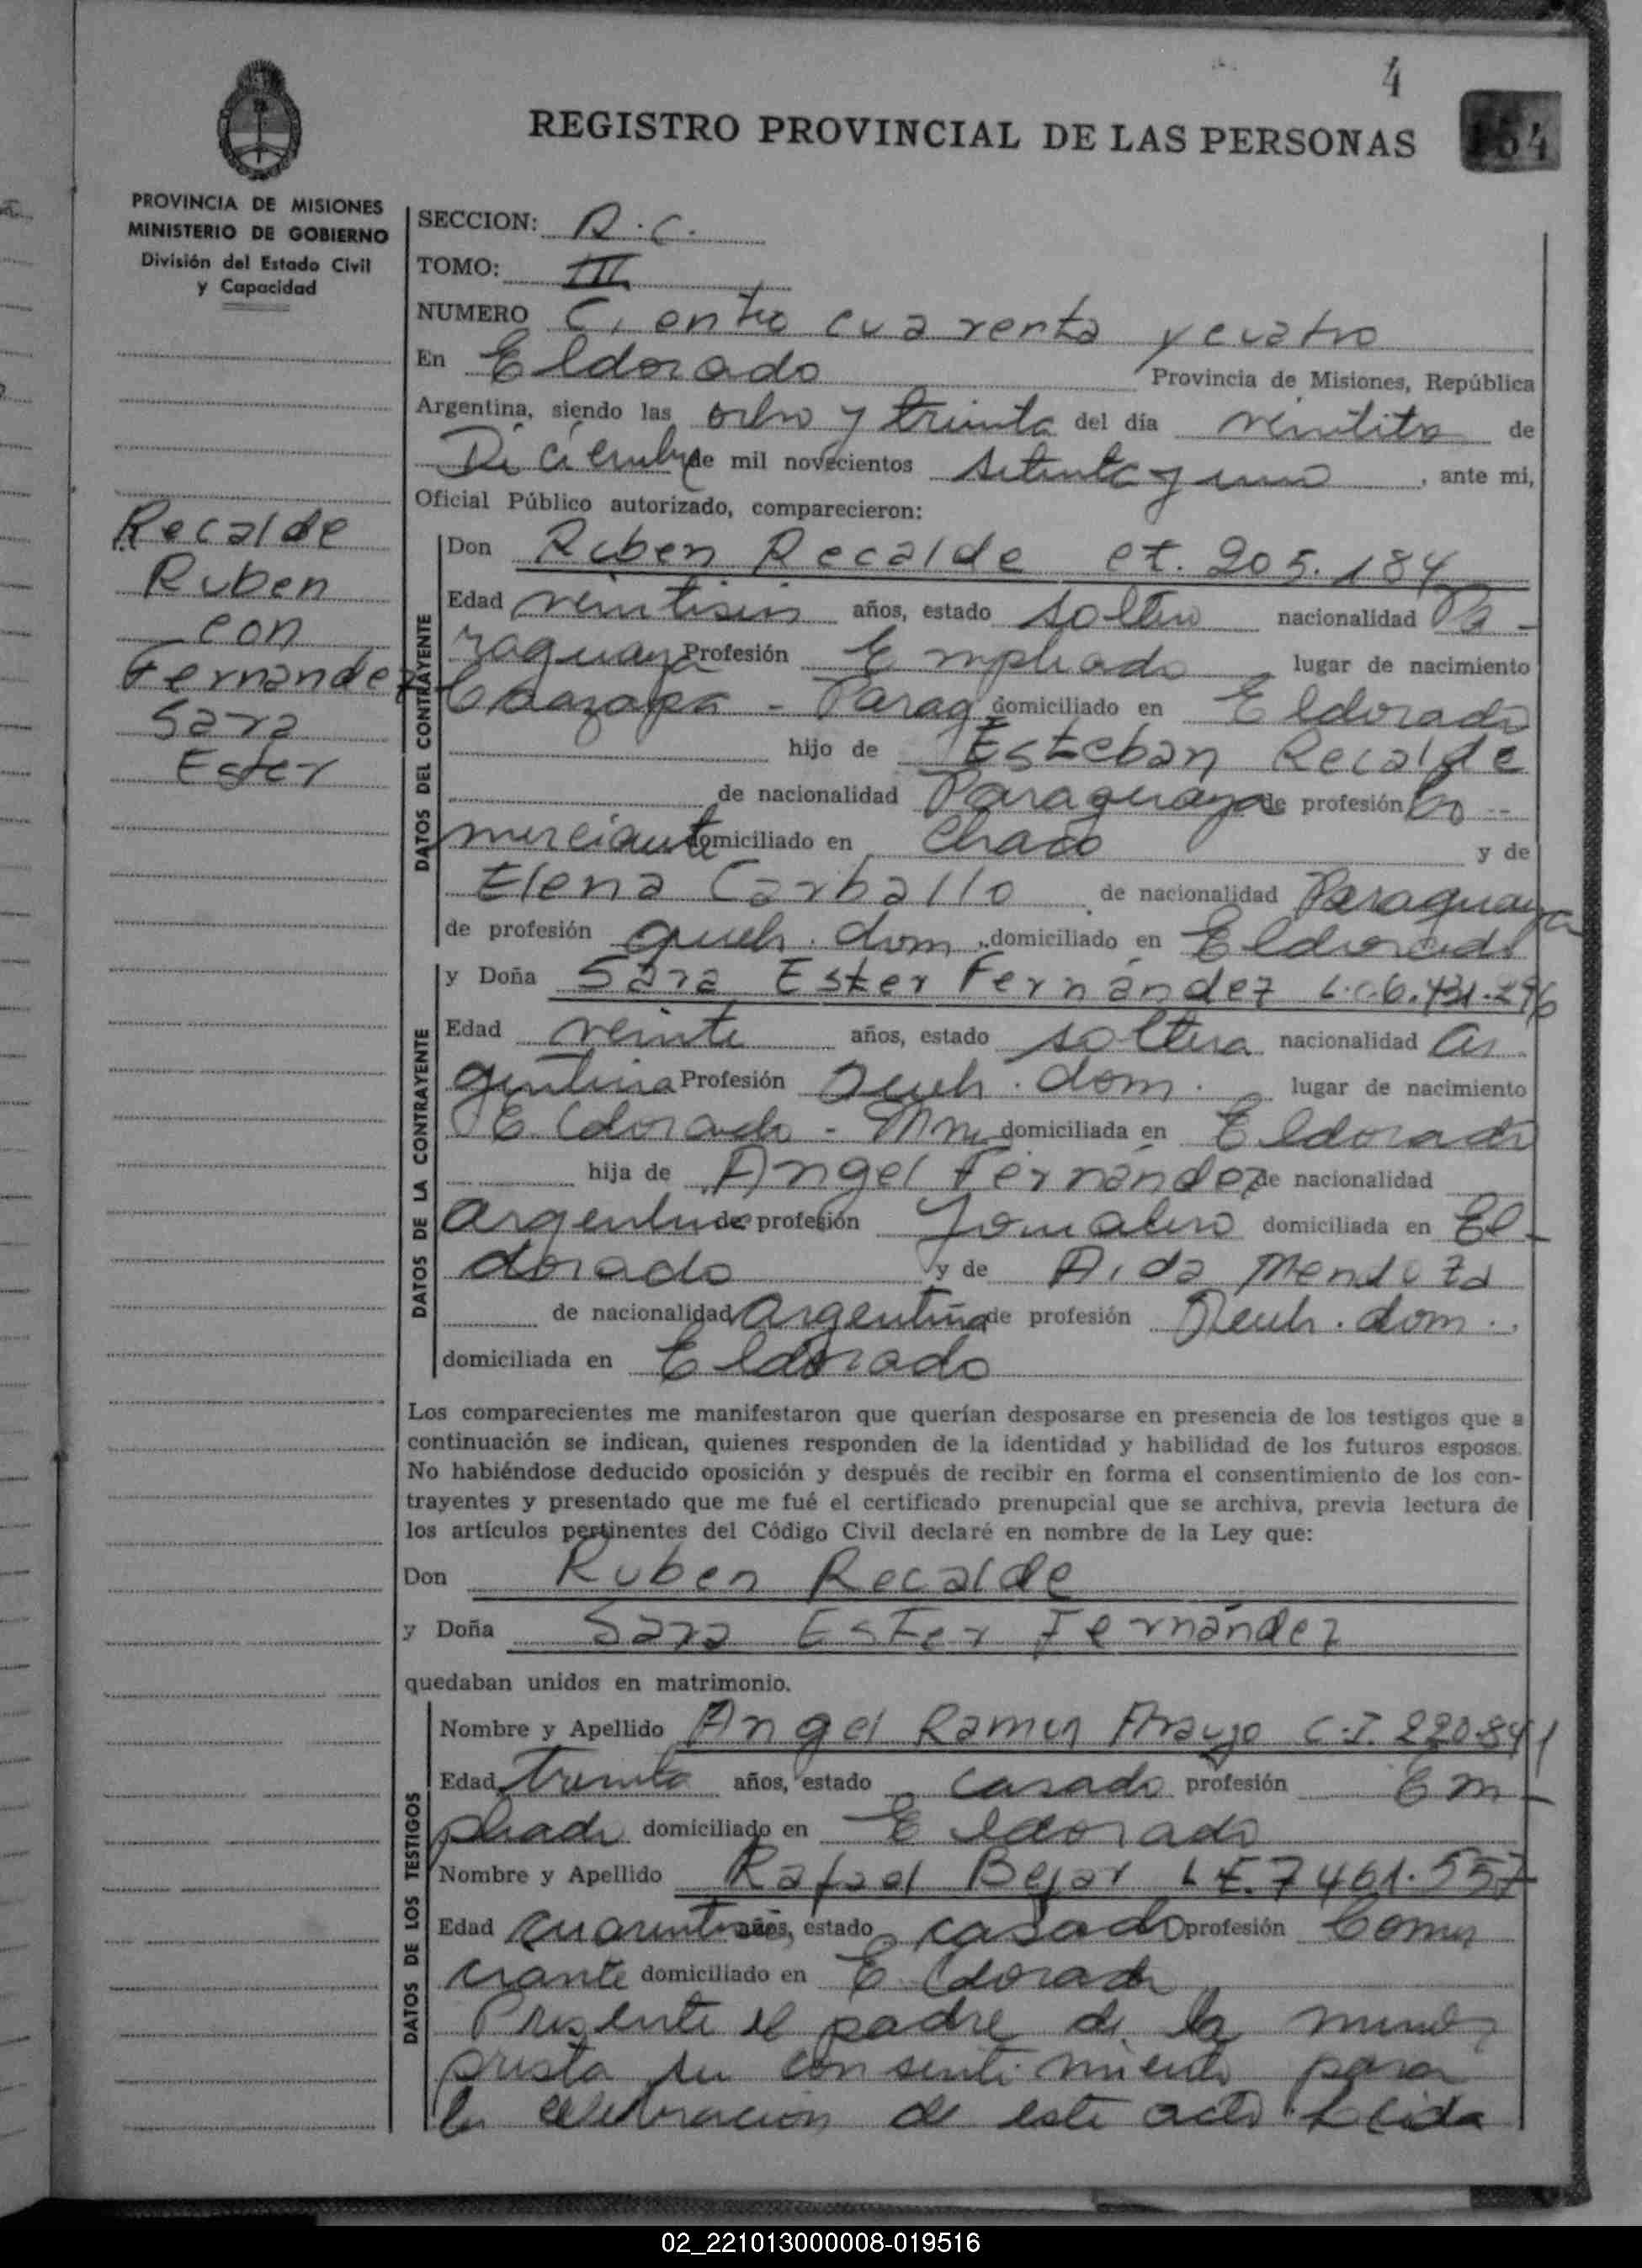 4
REGISTRO PROVINCIAL DE LAS PERSONAS
PROVINCIA DE MISIONES
MINISTERIO DE GOBIERNO
División del Estado Civil
y Capacidad
SECCION: R.C.
TOMO: III
NUMERO Ciento cuarenta y cuatro
En Eldorado Provincia de Misiones, República
Argentina, siendo las ocho y treinta del día de
Diciembre de mil novecientos setenta y uno, ante mi,
Oficial Público autorizado, comparecieron:
Recalde
Ruben
con
Fernandez
Sara
Ester
DATOS DEL CONTRAYENTE
Don Ruben Recalde et. 205.184
Edad veintiseis años, estado soltero nacionalidad Pa-
raguaya Profesión Empleado lugar de nacimiento
Caazapa - Parag. domiciliado en Eldorado
hijo de Esteban Recalde
de nacionalidad Paraguaya de profesión Co-
merciante domiciliado en Chaco y de
Elena Carballo de nacionalidad Paraguaya
de profesión queh. dom. domiciliado en Eldorado
DATOS DE LA CONTRAYENTE
y Doña Sara Ester Fernández L.C. 6.731.296
Edad veinte años, estado soltera nacionalidad Ar
gentina Profesión Queh. dom. lugar de nacimiento
Eldorado - Mnes domiciliada en Eldorado
hija de Angel Fernández de nacionalidad
Argentina de profesión Jornalero domiciliada en El-
dorado y de Aida Mendoza
de nacionalidad Argentina de profesión Queh. dom.
domiciliada en Eldorado
Los comparecientes me manifestaron que querían desposarse en presencia de los testigos que a
continuación se indican, quienes responden de la identidad y habilidad de los futuros esposos.
No habiéndose deducido oposición y después de recibir en forma el consentimiento de los con-
trayentes y presentado que me fué el certificado prenupcial que se archiva, previa lectura de
los artículos pertinentes del Código Civil declaré en nombre de la Ley que:
Don Ruben Recalde
y Doña Sara Ester Fernández
quedaban unidos en matrimonio.
DATOS DE LOS TESTIGOS
Nombre y Apellido Angel Ramon Araujo C.I. 220.841
Edad treinta años, estado casado profesión Em-
pleado domiciliado en Eldorado
Nombre y Apellido Rafael Bejar L.E. 7461.557
Edad años, estado casado profesión Comer
ciante domiciliado en Eldorado
Presente el padre de la menor
presta su consentimiento para
la celebración de este acto. Leida
02_221013000008-019516